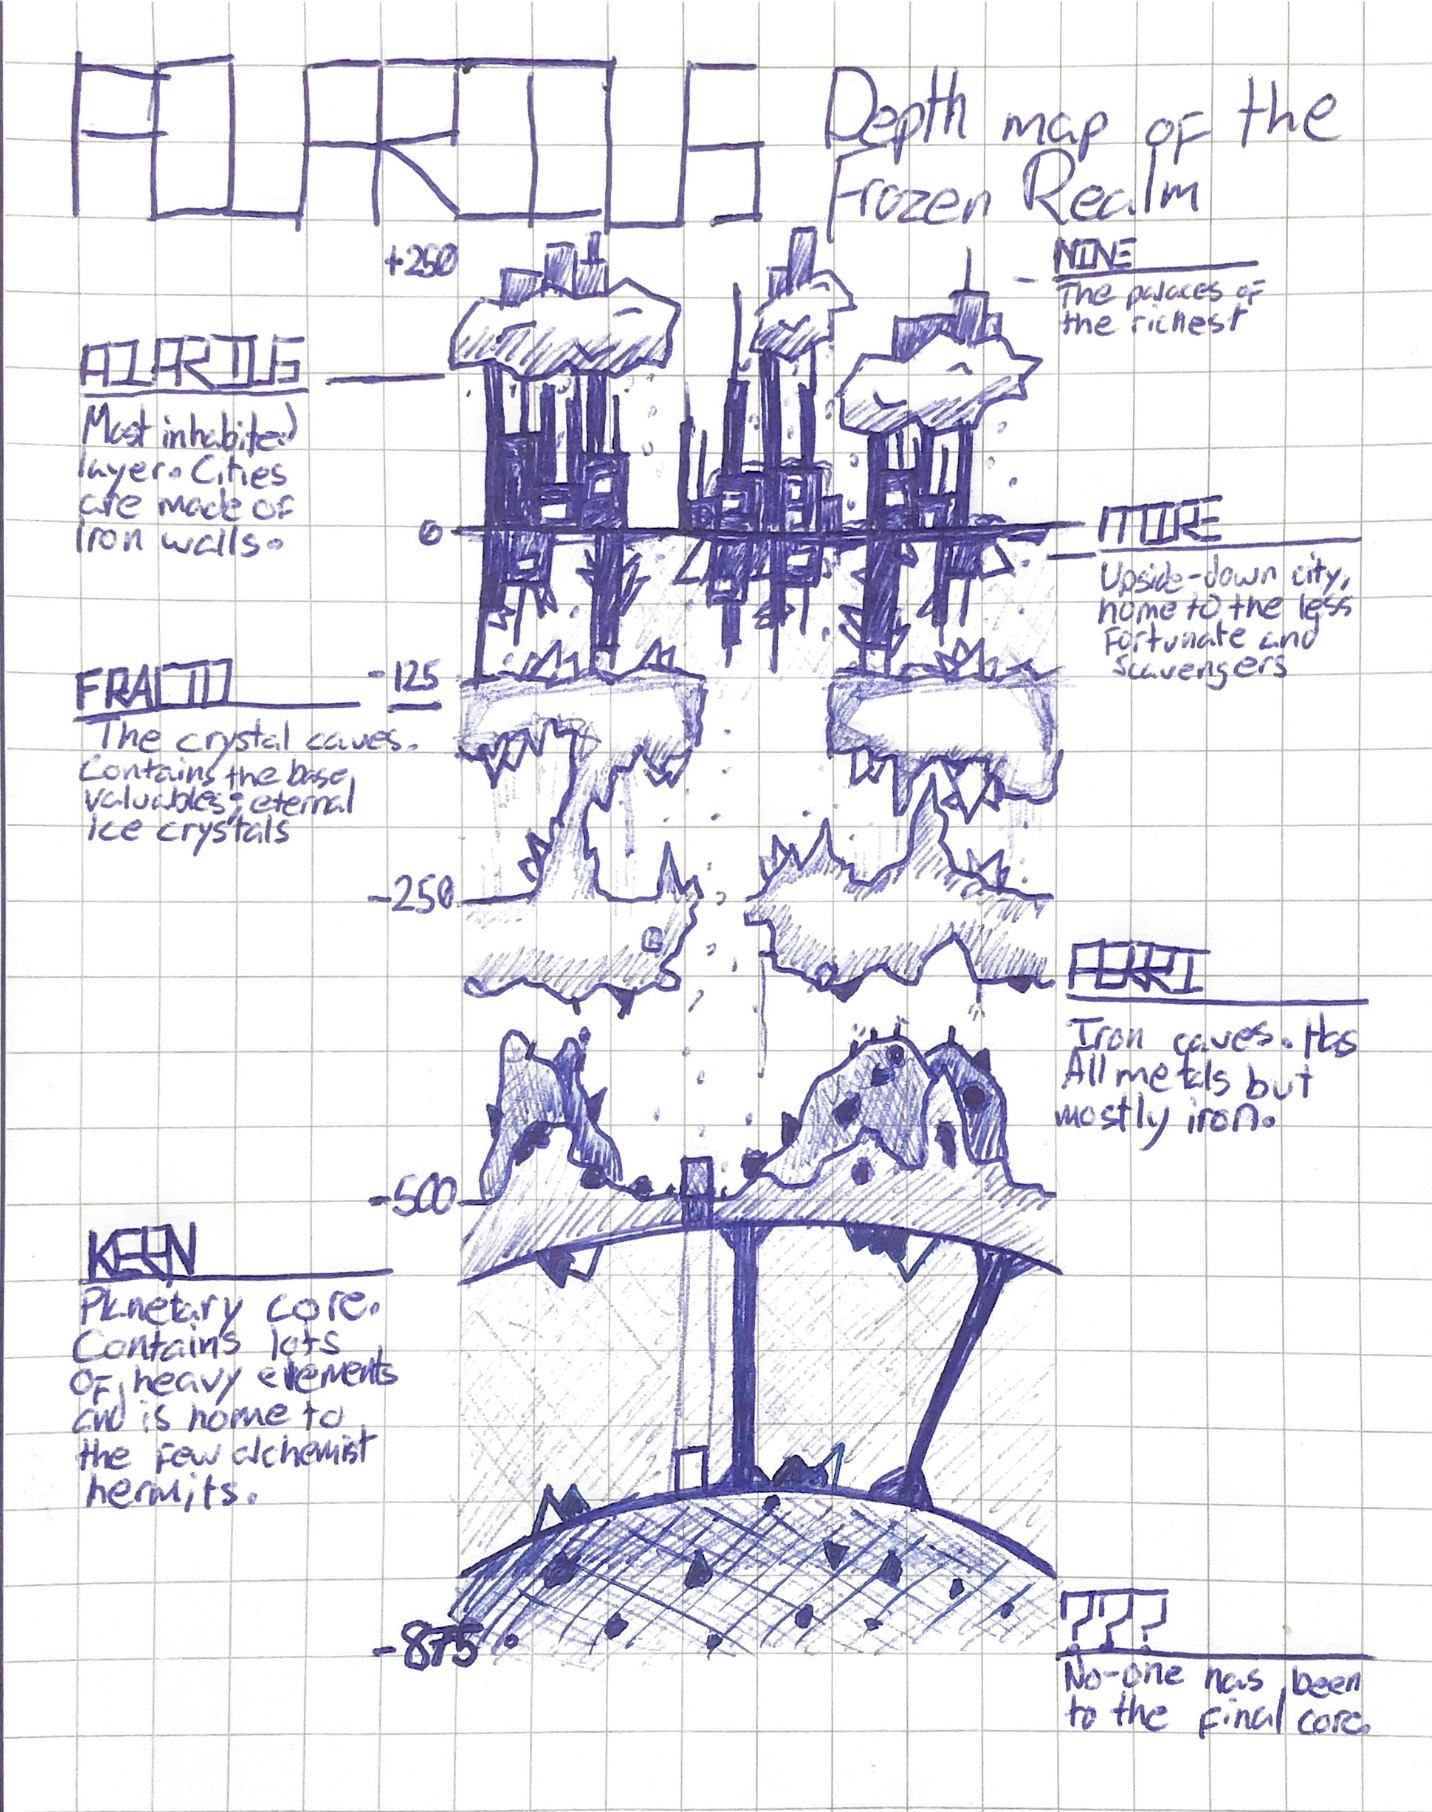 Depth map of the
Frozen Realm
+250
NINE
The palaces of
the richest
Most inhabited
layer. Cities
are made of
iron walls.
0
Upside-down city,
home to the less
Fortunate and
scavengers
-125
FRACTO
The crystal caves.
Contains the base
valuables; eternal
ice crystals
-250
FERRI
Iron caves. Has
All metals but
mostly iron.
-500
Planetary core.
Contains lots
of heavy elements
and is home to
the few alchemist
hermits.
-875
???
No-one has been
to the final core.